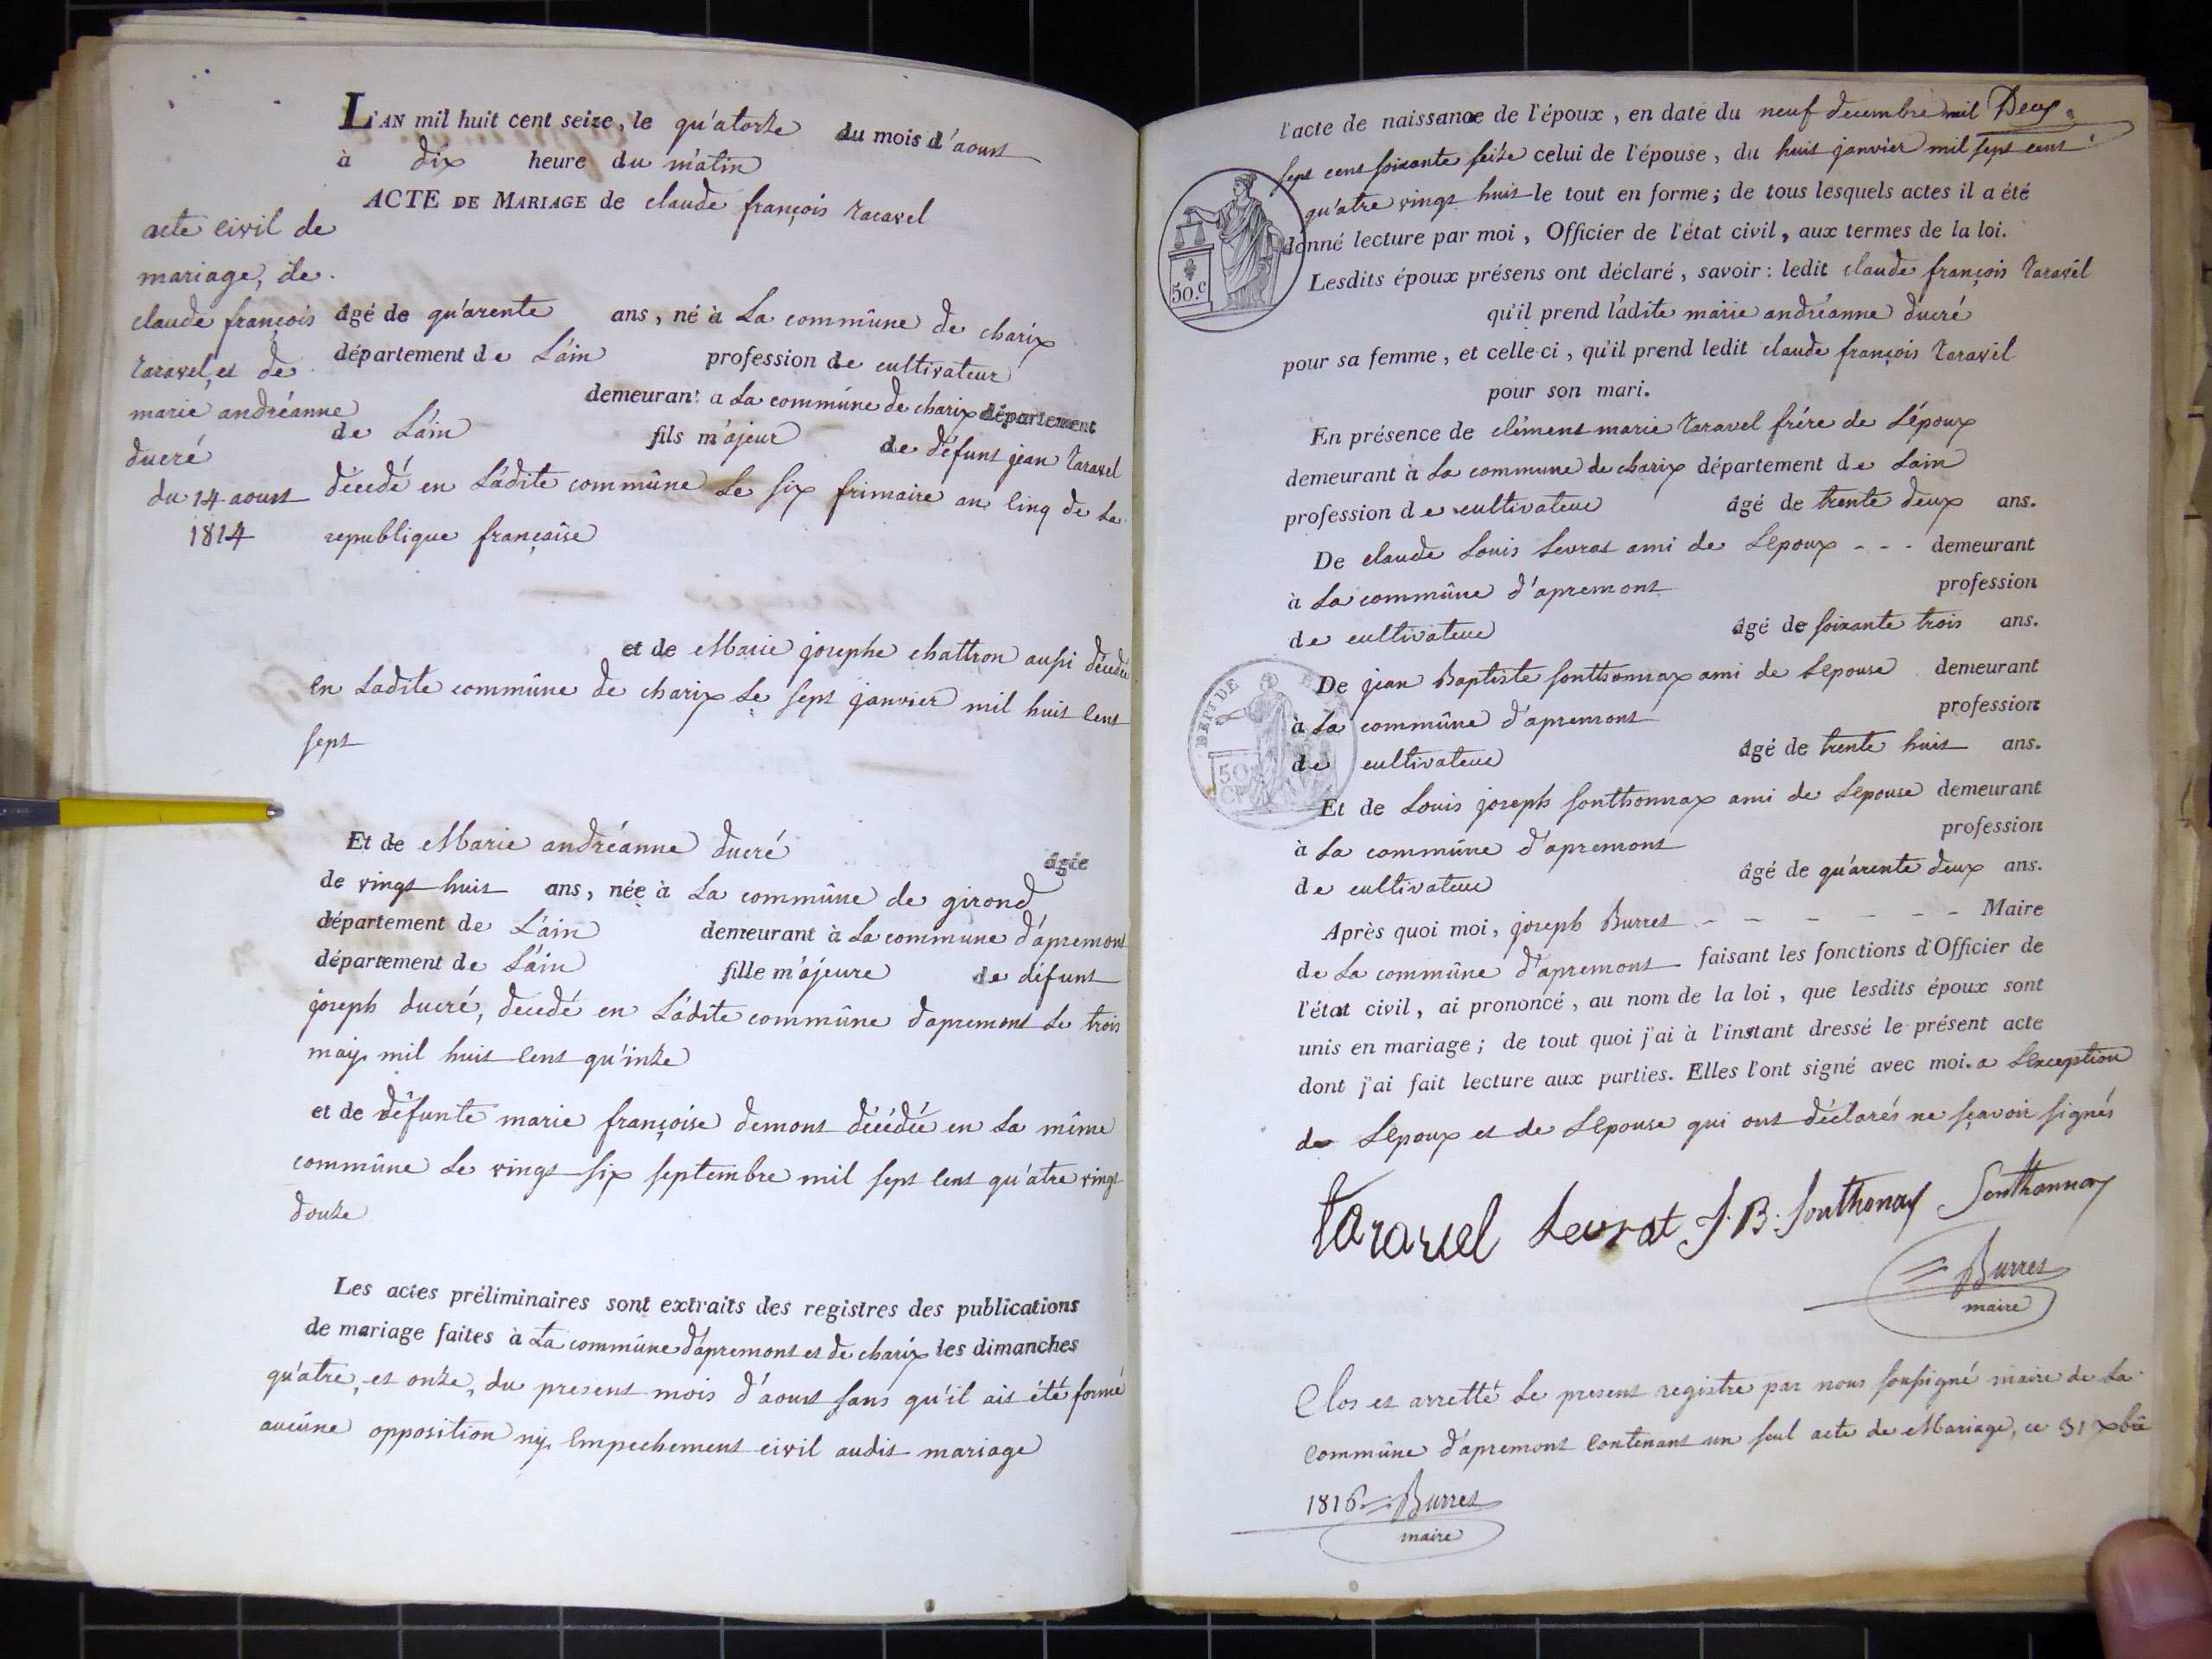 L'AN mil huit cent seize, le qu'atorze du mois d'aoust
à dix heure du matin
ACTE DE MARIAGE de claude françois taravel
acte civil de
mariage, de
claude françois
taravel, et de
marie andréanne
ducré
du 14 aoust
1814
âgé de qu'arente ans, né à La commûne de charix
département de L'ain profession de cultivateur
demeurant a La commune de charix département
de L'ain fils m'ajeur de défunt jean taravel
décedé en L'adite commûne Le six frimaire an cinq de La
republique françaîse
et de Marie josephe chattron aussi décedée
en Ladite commûne de charix Le sept janvier mil huit cent
sept
Et de Marie andréanne ducré âgée
de vingt huit ans, née à La commûne de girond
département de L'ain demeurant à La commune d'apremont
département de L'ain fille m'ajeure de défunt
joseph ducré, decedé en L'adite commûne d'apremont Le trois
may mil huit cent qu'inze
et de défunte marie françoise demont décédée en La même
commûne Le vingt six septembre mil sept cent qu'atre vingt
douze
Les actes préliminaires sont extraits des registres des publications
de mariage faites à La commûne d'apremont et de charix les dimanches
qu'atre, et onze, du present mois d'aoust sans qu'il ait été formé
aucûne opposition ny empechement civil audit mariage
l'acte de naissance de l'époux, en date du neuf decembre mil
sept cent soixante seize celui de l'épouse, du huit janvier mil sept cent
qu'atre vingt huit le tout en forme; de tous lesquels actes il a été
donné lecture par moi, Officier de l'état civil, aux termes de la loi.
50.c
Lesdits époux présens ont déclaré, savoir: ledit claude françois taravel
qu'il prend l'adite marie andréanne ducré
pour sa femme, et celle-ci, qu'il prend ledit claude françois taravel
pour son mari.
En présence de clément marie taravel frére de L'époux
demeurant à La commune de charix département de Lain
profession de cultivateur âgé de trente deux ans.
De claude Louis Levrat ami de Lepoux - - - demeurant
à La commûne d'apremont profession
de cultivateur âgé de soixante trois ans.
De jean Baptiste sonthonnax ami de Lepouse demeurant
à La commûne d'apremont profession
de cultivateur âgé de trente huit ans.
Et de Louis joseph sonthonnax ami de Lepouse demeurant
à La commûne d'apremont profession
de cultivateur âgé de qu'arente deux ans.
Après quoi moi, joseph Burret - - - - - - Maire
de La commûne d'apremont faisant les fonctions d'Officier de
l'état civil, ai prononcé, au nom de la loi, que lesdits époux sont
unis en mariage; de tout quoi j'ai à l'instant dressé le présent acte
dont j'ai fait lecture aux parties. Elles l'ont signé avec moi. a L'exception
de Lepoux et de Lepouse qui ont déclarés ne sçavoir signés
taravel Levrat J. B. Sonthonax Sonthonnax
Burret
maire
Clos et arretté Le present registre par nous soussigné maire de La
commûne d'apremont contenant un seul acte de Mariage, ce 31 xbre
1816 Burret
maire